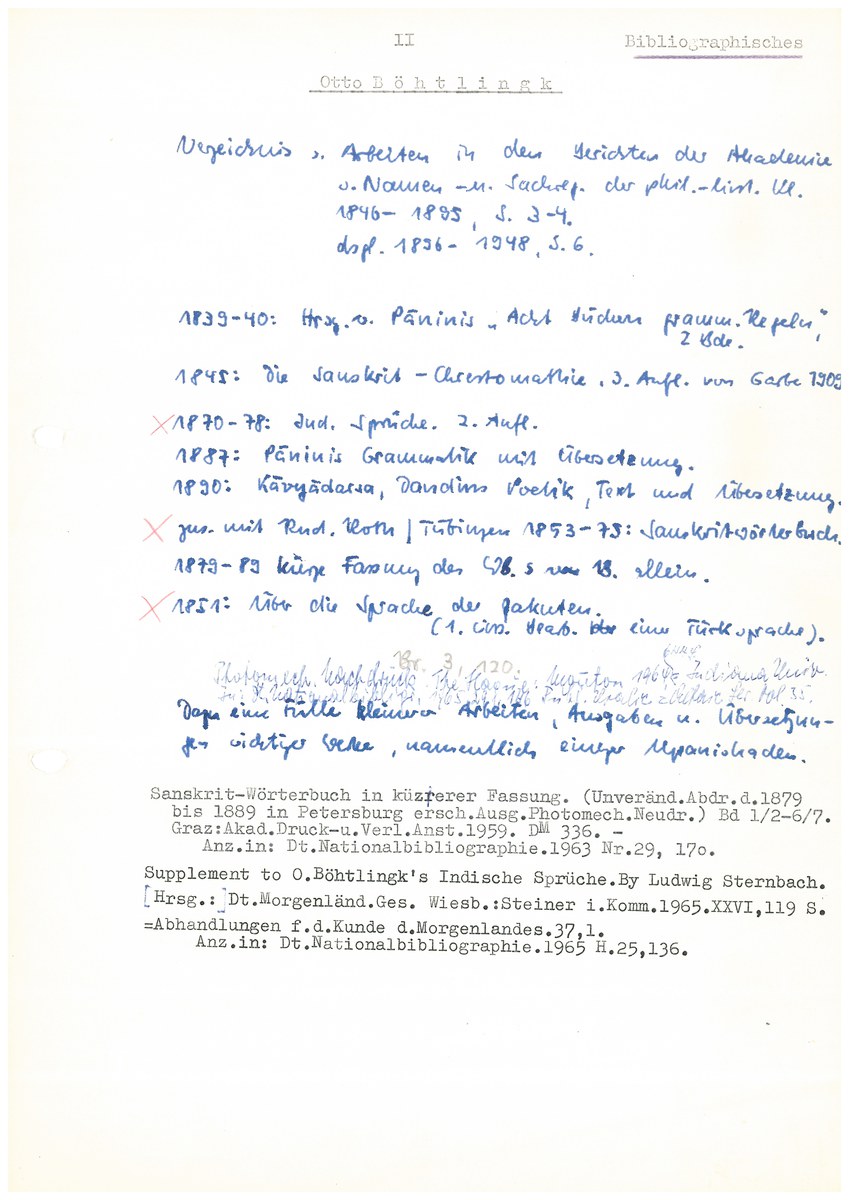 II
Bibliographisches
Otto B ö h t l i n g k
Verzeichnis s. Arbeiten in den Berichten der Akademie
s. Namen- u. Sachreg. der phil.-hist. Kl.
1846- 1895, S. 3-4.
dsgl. 1896- 1948, S. 6.
1839-40: Hrsg. v. Pāninis „Acht Büchern gramm. Regeln",
2 Bde.
1845: Die Sanskrit-Chrestomathie, 3. Aufl. von Garbe 1909
1870-78: Ind. Sprüche. 2. Aufl.
1887: Pāninis Grammatik mit Übersetzung.
1890: Kāvyādarsa, Dandins Poetik, Text und Übersetzung.
zus. mit Rud. Roth / Tübingen 1853-75: Sanskritwörterbuch.
1879-89 kürze Fassung des Wb. s von B. allein.
1851: Über die Sprache der Jakuten.
(1. wiss. Bearb. einer Türksprache).
Nr. 3, 120.
Photomech. Nachdruck. The Hague: Mouton 1964, Indiana Univ.
Dazu eine Fülle kleinerer Arbeiten, Ausgaben u. Übersetzun-
gen wichtiger Werke, namentlich einiger Upanishaden.
Sanskrit-Wörterbuch in küzrerer Fassung. (Unveränd.Abdr.d.1879
bis 1889 in Petersburg ersch.Ausg.Photomech.Neudr.) Bd 1/2-6/7.
Graz:Akad.Druck-u.Verl.Anst.1959. DM 336. -
Anz.in: Dt.Nationalbibliographie.1963 Nr.29, 170.
Supplement to O.Böhtlingk's Indische Sprüche.By Ludwig Sternbach.
[Hrsg.:]Dt.Morgenländ.Ges. Wiesb.:Steiner i.Komm.1965.XXVI,119 S.
=Abhandlungen f.d.Kunde d.Morgenlandes.37,1.
Anz.in: Dt.Nationalbibliographie.1965 H.25,136.